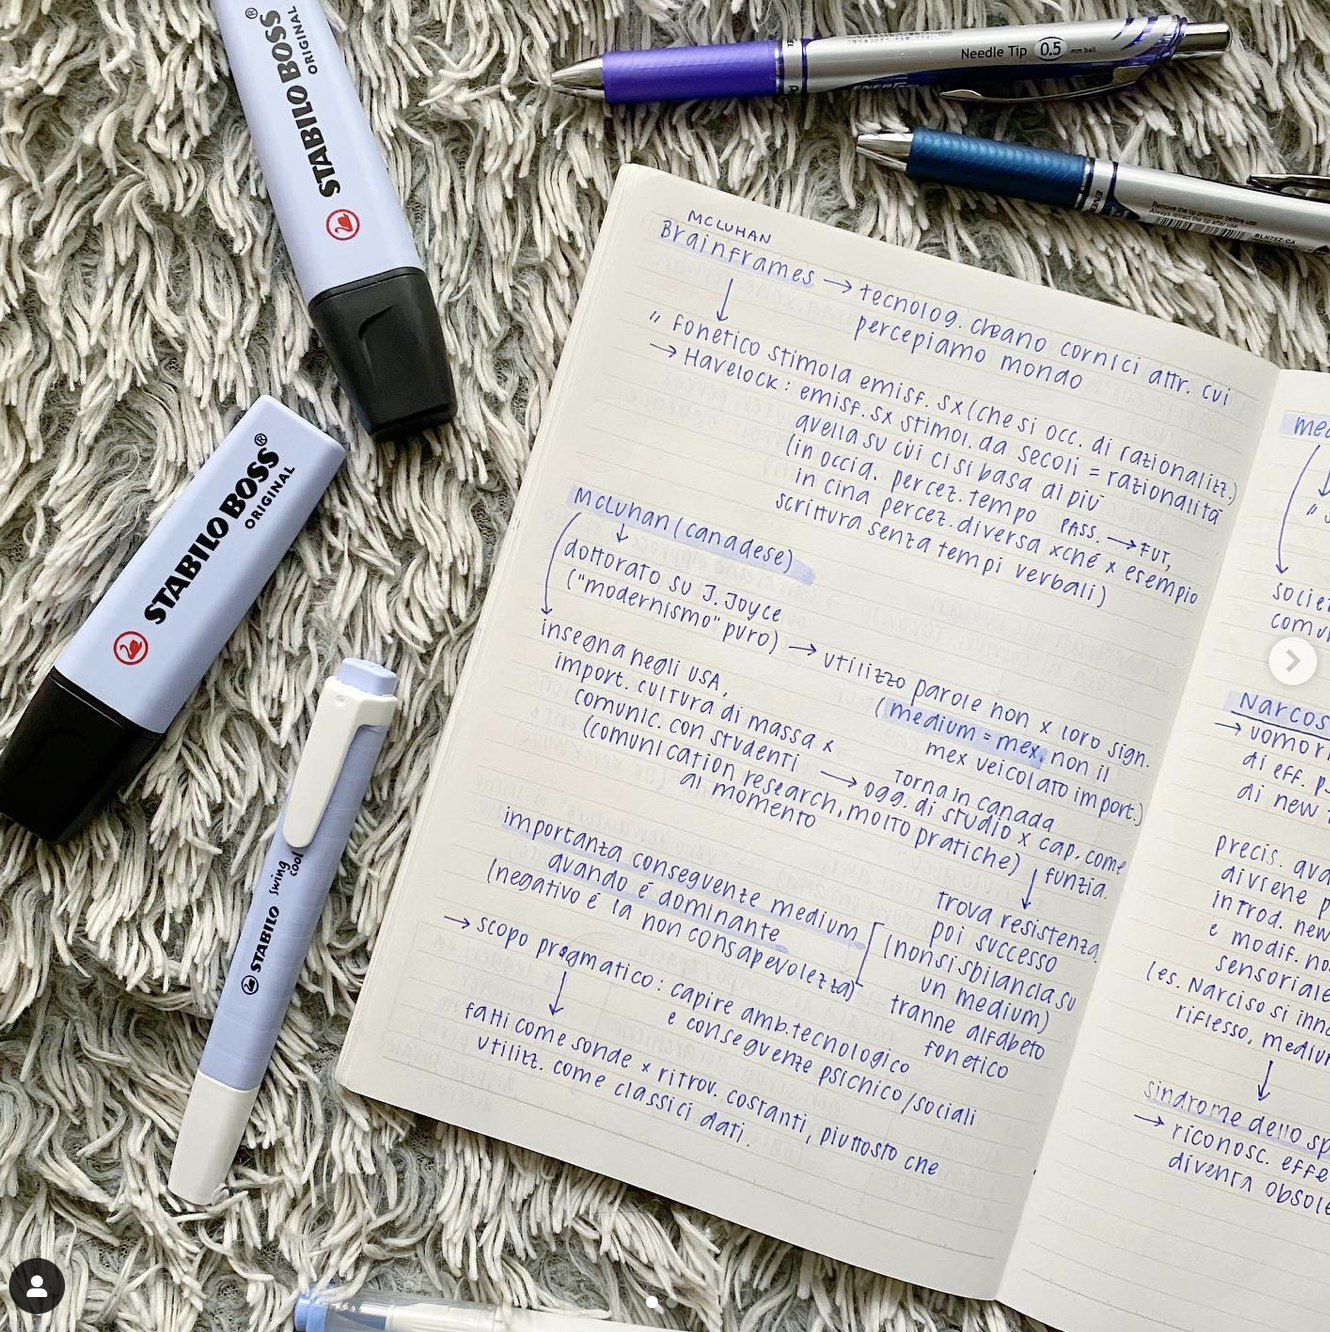 STABILO BOSS®
ORIGINAL
Needle Tip 0.5 mm ball
Remove the tip protector before use.
Always retract the tip after use.
BLN75Z-CA
STABILO BOSS®
ORIGINAL
STABILO swing cool
MCLUHAN
Brainframes → tecnolog. creano cornici attr. cui
percepiamo mondo
" fonetico stimola emisf. sx (che si occ. di razionalizz.)
→ Havelock: emisf. sx stimol. da secoli = razionalità
quella su cui ci si basa di più
(in occid. percez. tempo PASS. → FUT,
in cina percez. diversa xché x esempio
scrittura senza tempi verbali)
McLuhan (canadese)
dottorato su J. Joyce
("modernismo" puro) → utilizzo parole non x loro sign.
(medium = mex, non il
mex veicolato import.)
insegna negli USA,
import. cultura di massa x
comunic. con studenti
(comunication research, molto pratiche)
al momento
→ Torna in canada
ogg. di studio x cap. come
funzia.
Trova resistenza,
poi successo
(non si sbilancia su
un medium)
tranne alfabeto
fonetico
importanza conseguenze medium
quando è dominante
(negativo è la non consapevolezza)
→ scopo pragmatico: capire amb. tecnologico
e conseguenze psichico/sociali
fatti come sonde x ritrov. costanti, piuttosto che
utilizz. come classici dati.
societ
comun
Narcos
→ uomo r
di eff. p
di new
precis. qua
diviene p
introd. new
e modif. no
sensoriale
(es. Narciso si inna
riflesso, medium
sindrome dello sp
→ riconosc. effe
diventa obsole